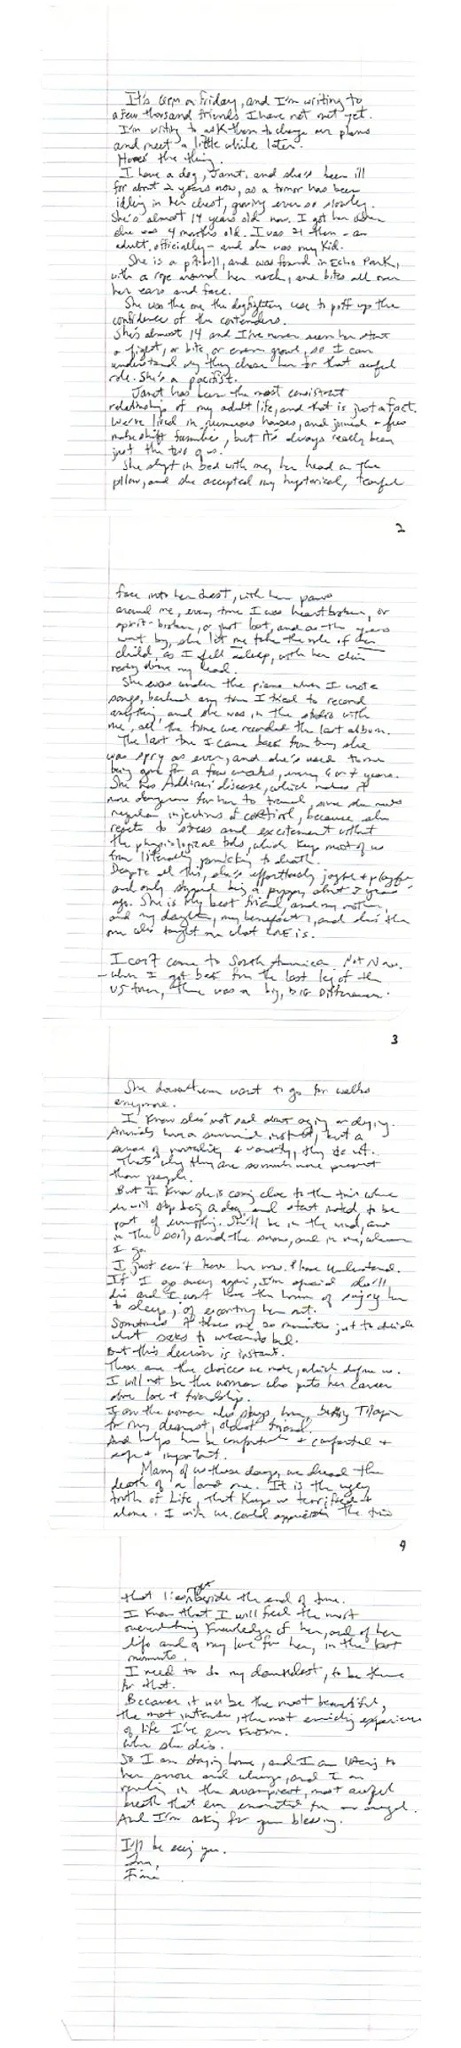 It's 6pm on Friday, and I'm writing to
a few thousand friends I have not met yet.
I'm writing to ask them to change our plans
and meet a little while later.
Here's the thing.
I have a dog, Janet, and she's been ill
for about 2 years now, as a tumor has been
idling in her chest, growing ever so slowly.
She's almost 14 years old now. I got her when
she was 4 months old. I was 21 then - an
adult, officially - and she was my kid.
She is a pitbull, and was found in Echo Park,
with a rope around her neck, and bites all over
her ears and face.
She was the one the dogfighters use to puff up the
confidence of the contenders.
She's almost 14 and I've never seen her start
a fight, or bite, or even growl, so I can
understand why they chose her for that awful
role. She's a pacifist.
Janet has been the most consistent
relationship of my adult life, and that is just a fact.
We've lived in numerous houses, and joined a few
makeshift families, but it's always really been
just the two of us.
She slept in bed with me, her head on the
pillow, and she accepted my hysterical, tearful
2
face into her chest, with her paws
around me, every time I was heartbroken, or
spirit-broken, or just lost, and as the years
went by, she let me take the role of her
child, as I fell asleep, with her chin
resting above my head.
She was under the piano when I wrote
songs, barked any time I tried to record
anything, and she was in the studio with
me, all the time we recorded the last album.
The last time I came back from tour, she
was spry as ever, and she's used to me
being gone for a few weeks, every 6 or 7 years.
She has Addison's disease, which makes it
more dangerous for her to travel, since she needs
regular injections of cortisol, because she
reacts to stress and excitement without
the physiological tools, which keep most of us
from literally panicking to death.
Despite all this, she's effortlessly joyful & playful
and only stopped being a puppy about 3 years
ago. She is my best friend, and my mother,
and my daughter, my benefactor, and she's the
one who taught me what LOVE is.
I can't come to South America. Not Now.
- When I got back from the last leg of the
US tour, there was a big, BIG difference.
3
She doesn't even want to go for walks
anymore.
I know she's not sad about aging or dying.
Animals have a survival instinct, but a
sense of mortality & vanity, they do not.
That's why they are so much more present
than people.
But I know she is coming close to the time where
she will stop being a dog, and start instead, to be
part of everything. She'll be in the wind, and
in the soil, and the snow, and in me, wherever
I go.
I just can't leave her now. Please understand.
If I go away again, I'm afraid she'll
die and I won't have the honor of singing her
to sleep, of escorting her out.
Sometimes it takes me 20 minutes just to decide
what socks to wear to bed.
But this decision is instant.
These are the choices we make, which define us.
I will not be the woman who puts her career
above love & friendship.
I am the woman who stays home, baking Tilapia
for my dearest, oldest friend.
And helps her be comfortable & comforted &
safe & important.
Many of us these days, we dread the
death of a loved one. It is the ugly
truth of Life, that keeps us terrified &
alone. I wish we could appreciate the time
4
that lies right beside the end of time.
I know that I will feel the most
overwhelming knowledge of her, and of her
life and of my love for her, in the last
moments.
I need to do my damnedest, to be there
for that.
Because it will be the most beautiful,
the most intense, the most enriching experience
of life I've ever known.
When she dies.
So I am staying home, and I am listening to
her snore and wheeze, and I am
reveling in the swampiest, most awful
breath that ever emanated from an angel.
And I'm asking for your blessing.
I'll be seeing you.
Love,
Fiona